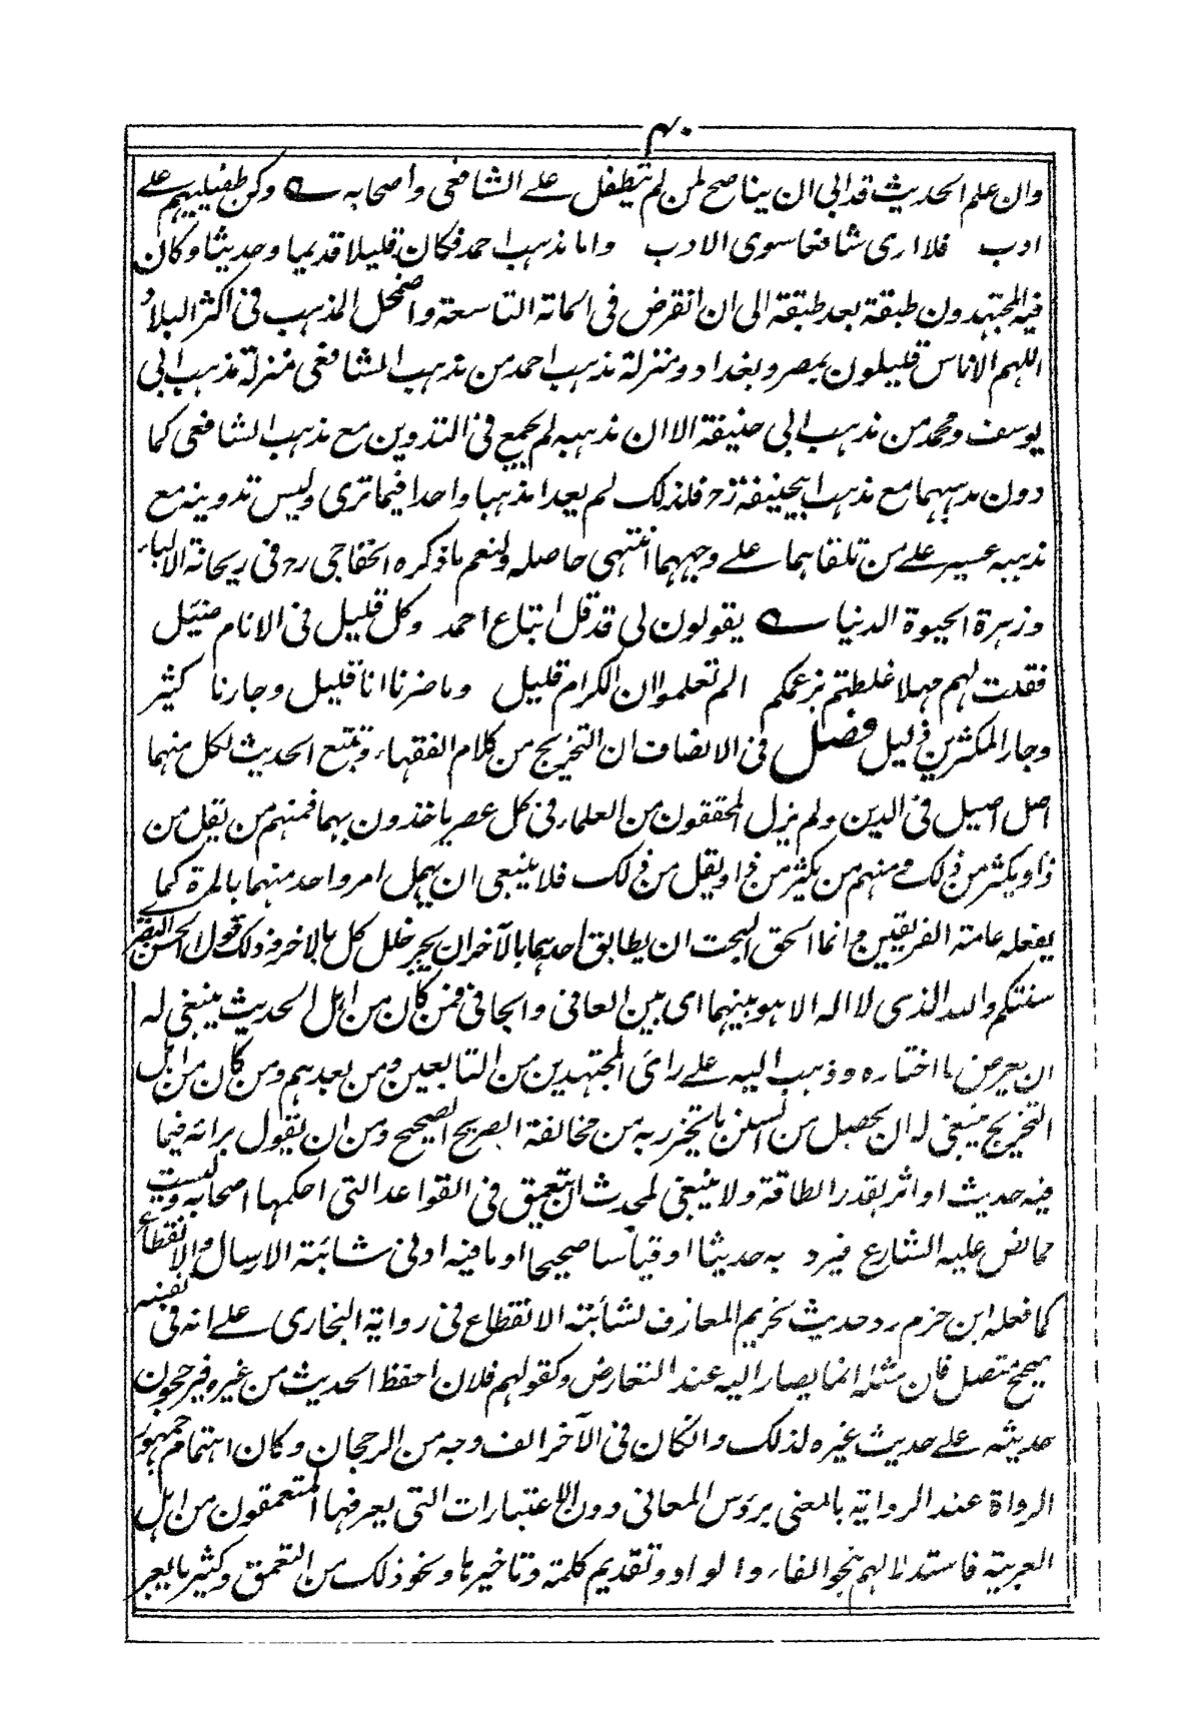 ۴۰
وان علم الحديث قد ابى ان يناصح لمن لم يتطفل على الشافعى واصحابه ؎ وكن طفيليهم على
ادب فلا ارى شافعا سوى الادب واما مذهب احمد فكان قليلا قديما وحديثا وكان
فيه المجتهدون طبقة بعد طبقة الى ان انقرض فى المائة التاسعة واضمحل المذهب فى اكثر البلاد
اللهم الا ناس قليلون بمصر وبغداد ومنزلة مذهب احمد من مذهب الشافعى منزلة مذهب ابى
يوسف ومحمد من مذهب ابى حنيفة الا ان مذهبه لم يجمع فى التدوين مع مذهب الشافعى كما
دون مذهبهما مع مذهب ابيحنيفة رح فلذلك لم يعدا مذهبا واحدا فيما ترى وليس تدوينه مع
مذهبه عسير على من تلقاهما على وجههما انتهى حاصله ولنعم ما ذكره الخفاجى رح فى ريحانة الالباء
وزهرة الحيوة الدنيا ؎ يقولون لى قد قل اتباع احمد وكل قليل فى الانام ضئيل
فقلت لهم مهلا غلطتم بزعمكم الم تعلموا ان الكرام قليل وما ضرنا انا قليل وجارنا كثير
وجار المكثرين ذليل فصل فى الانصاف ان التخريج من كلام الفقهاء وتتبع الحديث لكل منهما
اصل اصيل فى الدين ولم يزل المحققون من العلماء فى كل عصر ياخذون بهما فمنهم من يقل من
ذا ويكثر من ذلك ومنهم من يكثر من ذا ويقل من ذلك فلا ينبغى ان يهمل امر واحد منهما بالمرة كما
يفعله عامة الفريقين وانما الحق البحت ان يطابق احدهما بالآخر ان يجبر خلل كل بالاخر وذلك قول الحسن البصرى
سنتكم والله الذى لا اله الا هو بينهما اى بين العافى والجافى فمن كان من اهل الحديث ينبغى له
ان يعرض ما اختاره وذهب اليه على رأى المجتهدين من التابعين ومن بعدهم ومن كان من اهل
التخريج ينبغى له ان يحصل من السنن ما يتحرز به من مخالفة الصريح الصحيح ومن ان يقول برائه فيما
فيه حديث او اثر بقدر الطاقة ولا ينبغى لمحدث ان يتعمق فى القواعد التى احكمها اصحابه وليست
مما نص عليه الشارع فيرد به حديثا او قياسا صحيحا او ما فيه ادنى شائبة الارسال والانقطاع
كما فعله ابن حزم رد حديث تحريم المعازف لشائبة الانقطاع فى رواية البخارى على انه فى نفسه
صحيح متصل فان مثله انما يصار اليه عند التعارض وكقولهم فلان احفظ الحديث من غيره فيرجحون
حديثه على حديث غيره لذلك وان كان فى الآخر الف وجه من الرجحان وكان اهتمام جمهور
الرواة عند الرواية بالمعنى برؤس المعانى دون الاعتبارات التى يعرفها المتعمقون من اهل
العربية فاستدلالهم بنحو الفاء والواو وتقديم كلمة وتاخيرها ونحو ذلك من التعمق وكثيرا ما يعبر